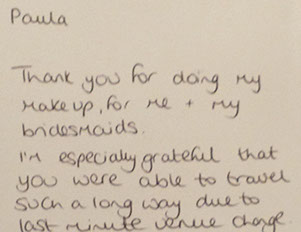 Paula
Thank you for doing my
makeup, for me + my
bridesmaids.
I'm especially grateful that
you were able to travel
such a long way due to
last minute venue change.